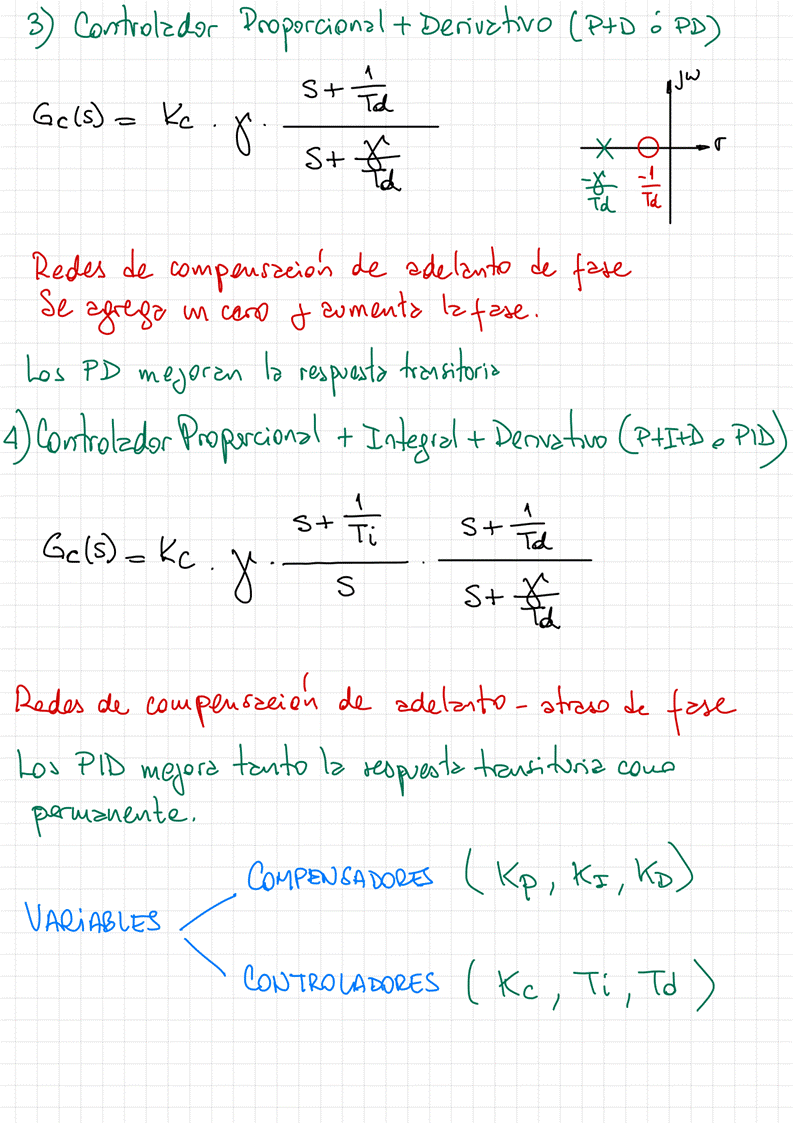 3) Controlador Proporcional + Derivativo (P+D ó PD)
Gc(s) = Kc . γ . (s + 1/Td) / (s + γ/Td)
jω
σ
-γ/Td -1/Td
Redes de compensación de adelanto de fase
Se agrega un cero y aumenta la fase.
Los PD mejoran la respuesta transitoria
4) Controlador Proporcional + Integral + Derivativo (P+I+D o PID)
Gc(s) = Kc . γ . (s + 1/Ti) / s . (s + 1/Td) / (s + γ/Td)
Redes de compensación de adelanto - atraso de fase
Los PID mejora tanto la respuesta transitoria como
permanente.
COMPENSADORES (KP, KI, KD)
VARIABLES
CONTROLADORES (Kc, Ti, Td)